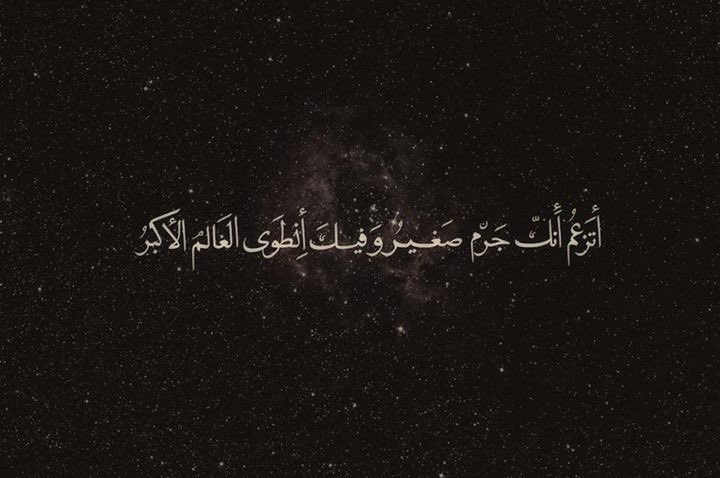 أَتَزعُم أَنكّ جَرّم صَغيرُ وَفيكَ أنِطَوَى العَالمُ الأكبرُ